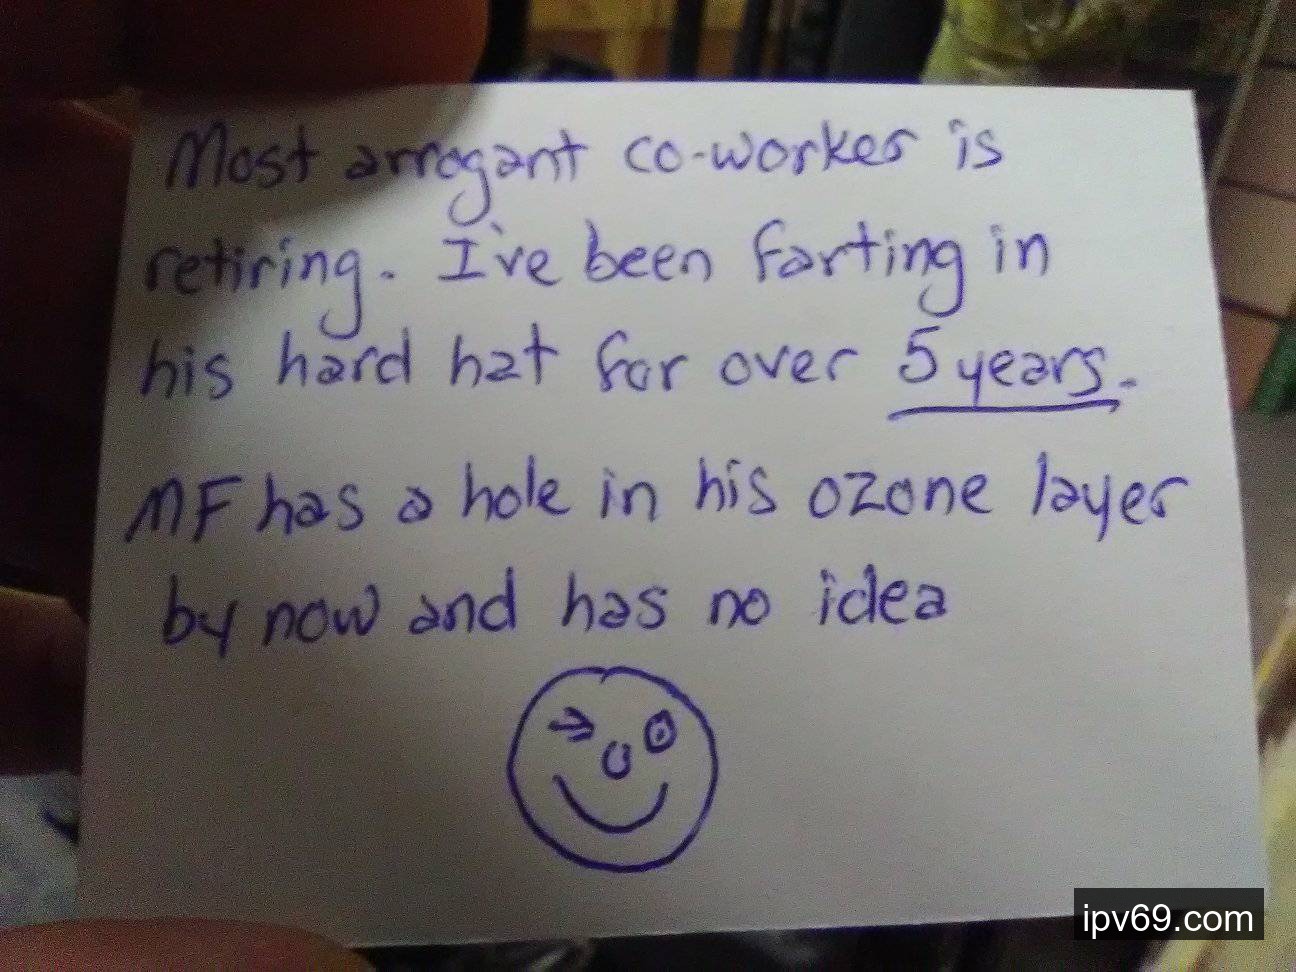 Most arrogant co-worker is
retiring. I've been farting in
his hard hat for over 5 years.
MF has a hole in his ozone layer
by now and has no idea
ipv69.com